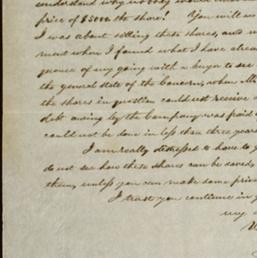 understand why nobody would
price of $5000 the share! You will
I was about selling these shares, and
ment when I found what I have alread
quence of my going with a buyer to see
the general state of the Concern, when Mr
the shares in question could not receive
debt owing by the Company was paid
could not be done in less than three years
I am really distressed to have to
do not see how these shares can be saved,
them, unless you can make some priva
I trust you continue in
my